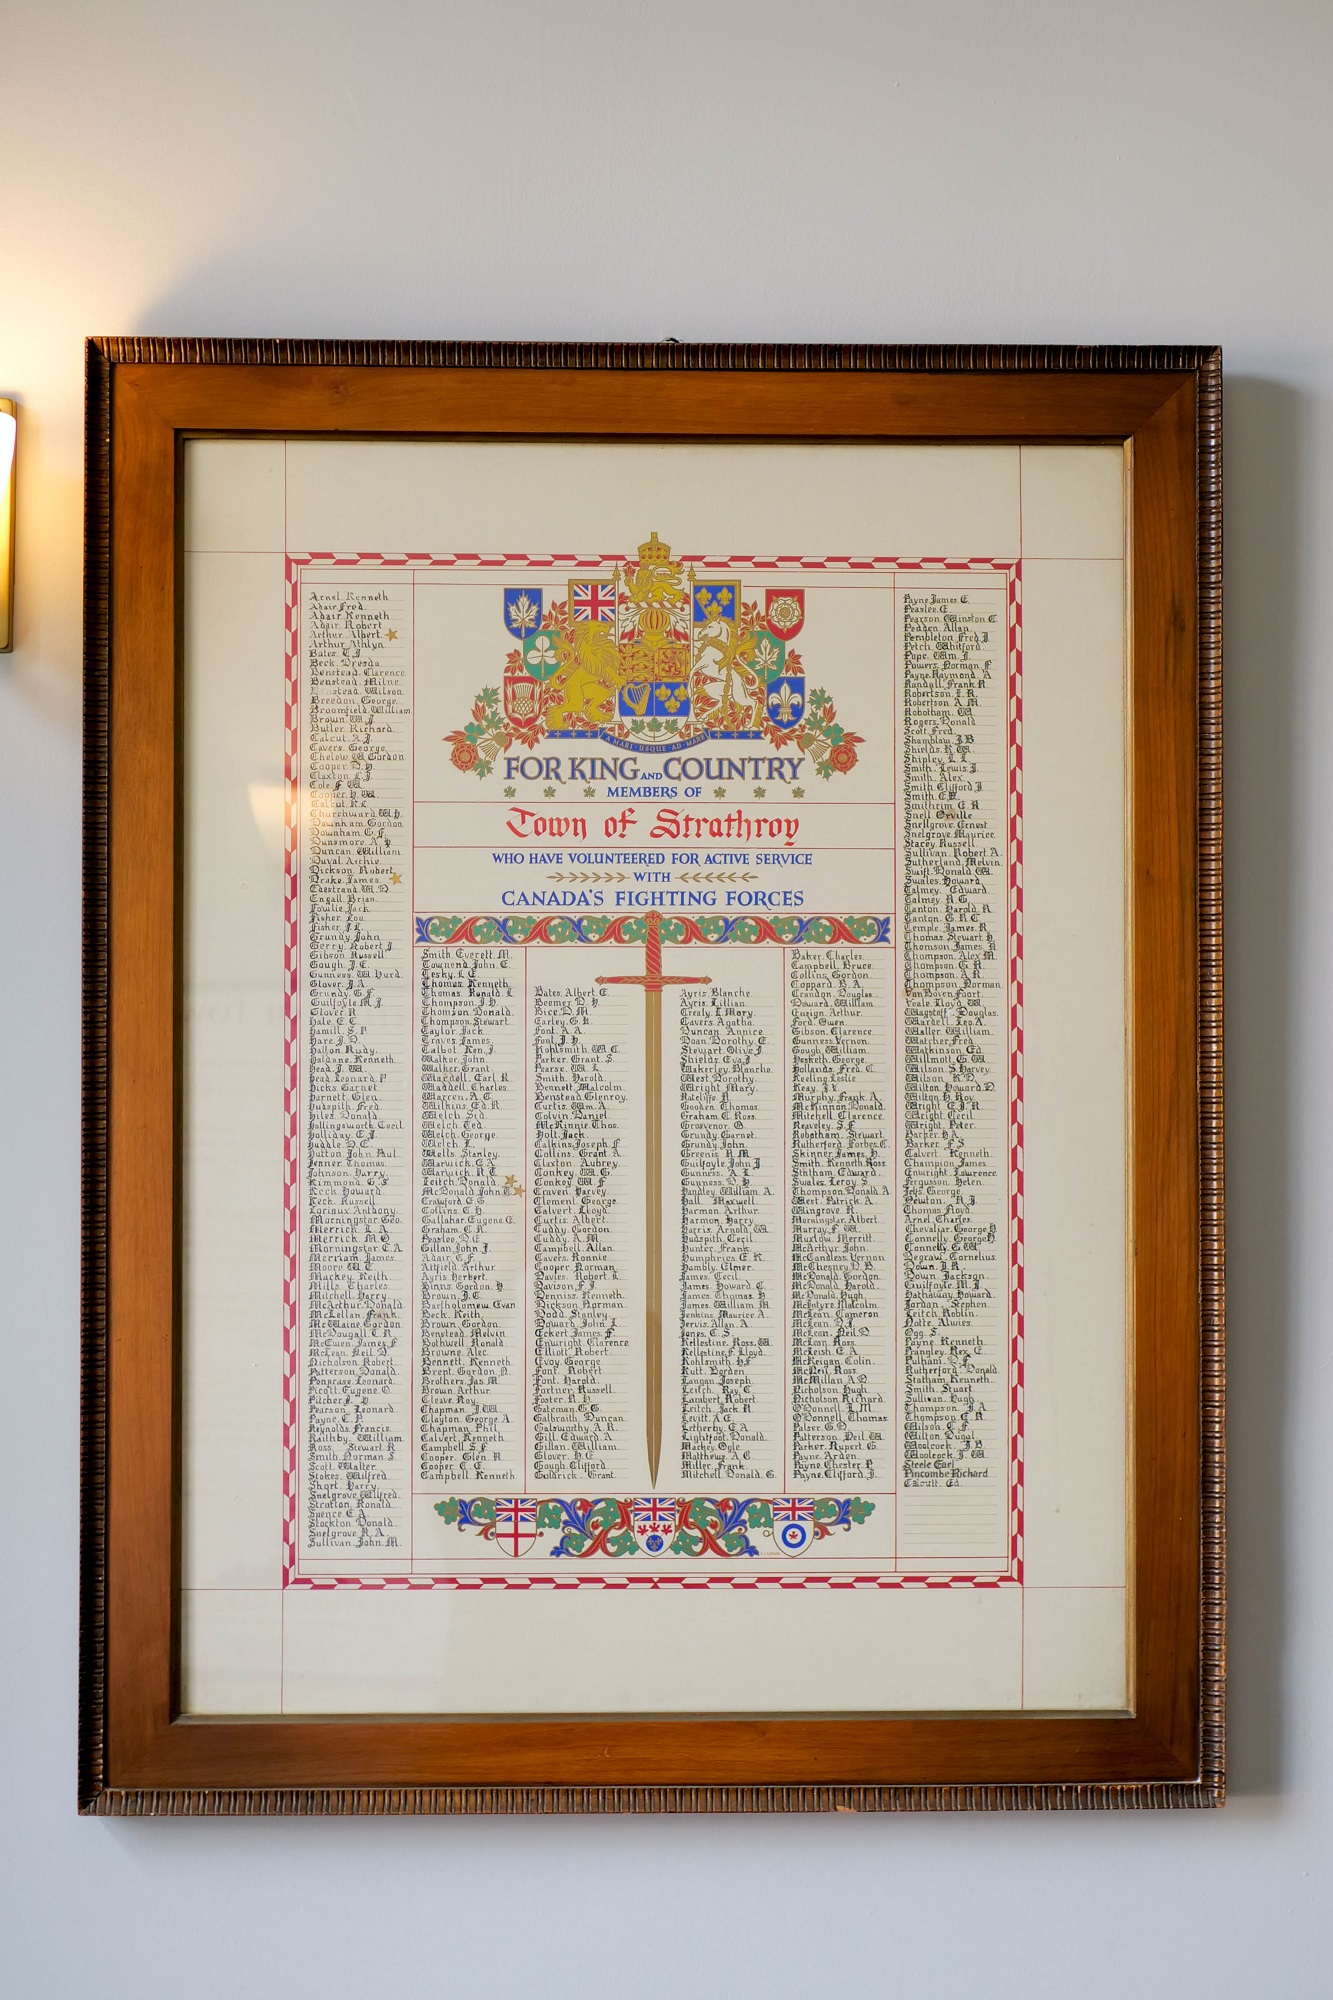 A MARI·USQUE·AD·MARE
FOR KING AND COUNTRY
MEMBERS OF
Town of Strathroy
WHO HAVE VOLUNTEERED FOR ACTIVE SERVICE
WITH
CANADA'S FIGHTING FORCES
Arnel, Kenneth
Adair, Fred
Adair, Kenneth
Adair, Robert
Arthur, Albert
Arthur, Athlyn
Bates, C. J.
Beck, Dresda
Benstead, Clarence
Benstead, Milne
Benstead, Wilson
Breedon, George
Broomfield, William
Brown, W. J.
Butler, Richard
Calcut, A. J.
Cavers, George
Chelow, W. Gordon
Cooper, D. H.
Claxton, L. J.
Cole, F. W.
Cooper, H. W.
Calcut, R. L.
Churchward, W. H.
Downham, Gordon
Downham, G. F.
Dunsmore, A. H.
Duncan, William
Duval, Archie
Dickson, Robert
Drake, James
Eastrand, W. D.
Engall, Brian
Fowlie, Jack
Fisher, Lou
Fisher, J. L.
Grundy, John
Gerry, Robert J.
Gibson, Russell
Gough, J. C.
Gunness, W. Hurd
Glover, J. A.
Grundy, G. F.
Guilfoyle, M. J.
Glover, R.
Hale, E. C.
Hamill, S. P.
Hare, J. D.
Halton, Rudy
Haldane, Kenneth
Head, J. W.
Head, Leonard P.
Hicks, Garnet
Harnett, Glen
Hudspith, Fred
Hiles, Donald
Hollingsworth, Cecil
Holliday, E. J.
Huddle, D. E.
Hutton, John Paul
Jenner, Thomas
Johnson, Harry
Kimmond, G. F.
Keck, Howard
Keck, Russell
Loriaux, Anthony
Morningstar, Geo.
Merrick, L. A.
Merrick, M. O.
Morningstar, C. A.
Merriam, James
Moore, W. T.
Mackey, Keith
Mills, Charles
Mitchell, Harry
McArthur, Donald
McLellan, Frank
McWaine, Gordon
McDougall, T. R.
McEwen, James F.
McLean, Neil D.
Nicholson, Robert
Patterson, Donald
Ponprase, Leonard
Picott, Eugene O.
Pitcher, J. H.
Pearson, Leonard
Payne, C. P.
Reynolds, Francis
Raithby, William
Ross, Stewart R.
Smith, Norman S.
Scott, Walter
Stokes, Wilfred
Short, Harry
Snelgrove, Wilfred
Stratton, Ronald
Spence, E. A.
Stockton, Donald
Snelgrove, R. A.
Sullivan, John M.
Smith, Everett M.
Townend, John E.
Tesky, L. E.
Thomas, Kenneth
Thomas, Ronald L.
Thompson, J. H.
Thomson, Donald
Thompson, Stewart
Taylor, Jack
Traves, James
Talbot, Ken. J.
Walker, John
Walker, Grant
Wardell, Earl R.
Waddell, Charles
Warren, A. C.
Wilkins, Ed. R.
Welch, Sid
Welch, Ted
Welch, George
Welch, L.
Wells, Stanley
Warwick, E. A.
Warwick, R. T.
Leitch, Donald
McDonald, John T.
Crawford, G. G.
Collins, C. H.
Gallahar, Eugene E.
Graham, C. R.
Peaslee, D. E.
Gillan, John J.
Adair, E. F.
Attfield, Arthur
Ayris, Herbert
Binns, Gordon H.
Brown, J. C.
Bartholomew, Evan
Beck, Keith
Brown, Gordon
Benstead, Melvin
Bothwell, Ronald
Browne, Alec
Bennett, Kenneth
Brent, Gordon N.
Brothers, Jas. M.
Brown, Arthur
Cleave, Roy
Chapman, J. W.
Clayton, George A.
Chapman, Phil
Calvert, Kenneth
Campbell, S. F.
Cooper, Glen R.
Cooper, C. E.
Campbell, Kenneth
Bates, Albert E.
Beemer, D. H.
Bice, D. M.
Earley, G. H.
Font, A. A.
Font, J. H.
Kohlsmith, W. C.
Parker, Grant S.
Pearse, W. L.
Smith, Harold
Bennett, Malcolm
Benstead, Glenroy
Curtis, Wm. A.
Colvin, Daniel
McKinnie, Thos.
Holt, Jack
Calkins, Joseph F.
Collins, Grant A.
Claxton, Aubrey
Conkey, W. G.
Conkey, W. F.
Craven, Harvey
Clement, George
Calvert, Lloyd
Curtis, Albert
Cuddy, Gordon
Cuddy, A. M.
Campbell, Allan
Cavers, Ronnie
Cooper, Norman
Davies, Robert L.
Davison, F. J.
Denniss, Kenneth
Dickson, Norman
Dodd, Stanley
Doward, John L.
Eckert, James F.
Enwright, Clarence
Elliott, Robert
Evoy, George
Font, Robert
Font, Harold
Fortner, Russell
Foster, R. H.
Gateman, G. G.
Galbraith, Duncan
Galsworthy, A. R.
Gill, Edward A.
Gillan, William
Glover, H. E.
Gough, Clifford
Goldrick, Grant
Ayris, Blanche
Ayris, Lillian
Crealy, L. Mary
Cavers, Agatha
Duncan, Annice
Doan, Dorothy E.
Stewart, Olive J.
Shields, Eva J.
Wakerley, Blanche
West, Dorothy
Wright, Mary
Ratcliffe, R.
Gooden, Thomas
Graham, C. Ross
Grosvenor, O.
Grundy, Garnet
Grundy, John
Greenis, R. M.
Guilfoyle, John J.
Gunness, A. L.
Gunness, D. H.
Handley, William A.
Hall, Maxwell
Harmon, Arthur
Harmon, Harry
Harris, Arnold W.
Hudspith, Cecil
Hunter, Frank
Humphries, E. R.
Hambly, Elmer
James, Cecil
James, Howard C.
James, Thomas H.
James, William R.
Jenkins, Maurice A.
Jervis, Allan A.
Jones, C. S.
Kellestine, Ross W.
Kellestine, F. Lloyd
Kohlsmith, H. F.
Kutt, Borden
Langan, Joseph
Leitch, Ray C.
Lambert, Robert
Leitch, Jack R.
Levitt, A. E.
Letherby, E. A.
Lightfoot, Donald
Mackey, Ogle
Matthews, A. C.
Miller, Frank
Mitchell, Donald G.
Baker, Charles
Campbell, Bruce
Collins, Gordon
Coppard, B. A.
Crandon, Douglas
Doward, William
Ensign, Arthur
Ford, Owen
Gibson, Clarence
Gunness, Vernon
Gough, William
Hesketh, George
Hollands, Fred. C.
Keeling, Leslie
Keay, J. V.
Murphy, Frank A.
McKinnon, Donald
Mitchell, Clarence
Reaveley, S. F.
Robotham, Stewart
Rutherford, Forbes C.
Skinner, James H.
Smith, Kenneth Ross
Statham, Edward
Swales, Leroy S.
Thompson, Donald A.
West, Patrick A.
Wingrove, R.
Morningstar, Albert
Murray, F. W.
Murlow, Merritt
McArthur, John
McCandless, Vernon
McChesney, D. B.
McDonald, Gordon
McDonald, Harold
McDonald, Hugh
McIntyre, Malcolm
McLean, Cameron
McLean, D. J.
McLean, Neil D.
McLean, Ross
McLeish, E. A.
McKeigan, Colin
McNeil, Ross
McMillan, A. D.
Nicholson, Hugh
Nicholson, Richard
O'Donnell, L. M.
O'Donnell, Thomas
Palser, G. D.
Patterson, Neil W.
Parker, Rupert G.
Payne, Arden
Payne, Chester P.
Payne, Clifford J.
Payne, James E.
Peaslee, E.
Pearson, Winston C.
Pedden, Allan
Pembleton, Fred J.
Petch, Whitford
Pope, Wm. J.
Powers, Norman F.
Payne, Raymond A.
Randall, Frank R.
Robertson, I. R.
Robertson, A. M.
Robotham, W.
Rogers, Donald
Scott, Fred
Shamblaw, J. B.
Shields, R. W.
Shipley, L. L.
Smith, Lewis J.
Smith, Alex
Smith, Clifford J.
Smith, E. W.
Smithrim, C. R.
Snell, Orville
Snellgrove, Ernest
Snelgrove, Maurice
Stacey, Russell
Sullivan, Robert A.
Sutherland, Melvin
Swift, Donald W.
Swales, Howard
Talmey, Edward
Talmey, R. G.
Tanton, Harold R.
Tanton, G. R. C.
Temple, James R.
Thomas, Stewart H.
Thomson, James R.
Thompson, Alex M.
Thompson, G. R.
Thompson, A. R.
Thompson, Norman
VanBoven, Foort
Veale, Lloyd W.
Wagstaff, Douglas
Wardell, Leo A.
Waller, William
Watcher, Fred
Watkinson, Ed
Willmott, G. W.
Wilson, S. Harvey
Wilson, K. D.
Wilton, Howard D.
Wilton, H. Roy
Wright, E. J. R.
Wright, Cecil
Wright, Peter
Barker, H. A.
Barker, F. S.
Calvert, Kenneth
Champion, James
Enwright, Lawrence
Fergusson, Helen
Jebs, George
Newton, R. J.
Thomas, Floyd
Arnel, Charles
Chevaliar, George H.
Connelly, George H.
Connelly, G. W.
Degraw, Cornelius
Down, J. R.
Down, Jackson
Guilfoyle, M. J.
Hathaway, Howard
Jordan, Stephen
Leitch, Roblin
Notte, Alwies
Ogg, S.
Payne, Kenneth
Prangley, Rex E.
Pulham, D. F.
Rutherford, Donald
Statham, Kenneth
Smith, Stuart
Sullivan, Hugh
Thompson, J. A.
Thompson, C. R.
Wilson, C. F.
Wilton, Dugal
Woolcock, J. B.
Woolcock, J. W.
Steele, Earl
Pincombe, Richard
Calcutt, Ed.